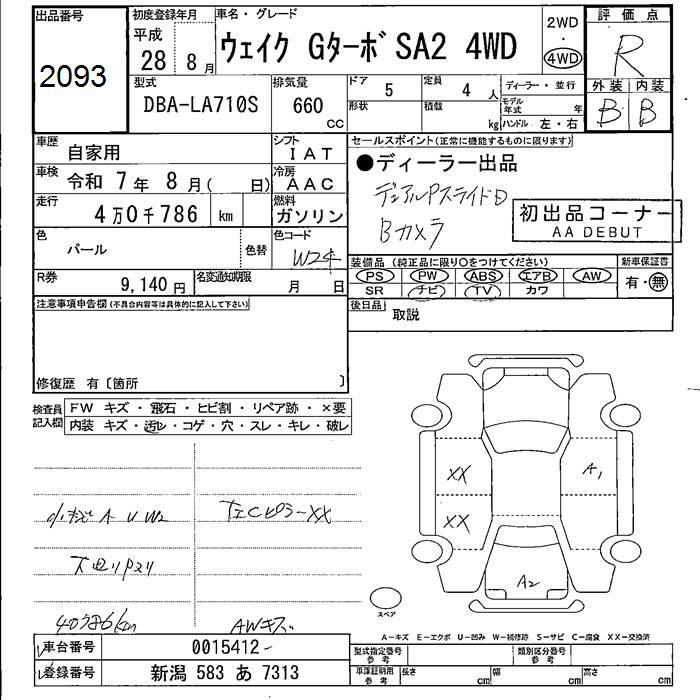 出品番号
2093
初度登録年月
平成
28年 8月
車名・グレード
ウェイク Gターボ SA2 4WD
2WD
・
4WD
評価点
R
外装 内装
B B
型式
DBA-LA710S
排気量
660
CC
ドア 5
形状
定員 4 人
積載 kg
ディーラー・並行
モデル年式 年
ハンドル 左・右
車歴 自家用
車検 令和 7年 8月( 日)
走行 4万0千786 km
色 パール 色替
シフト IAT
冷房 AAC
燃料 ガソリン
色コード W24
R券 9,140円
名変通知期限 月 日
セールスポイント(正常に機能するものに限ります)
●ディーラー出品
デュアルPスライドD
Bカメラ
初出品コーナー
AA DEBUT
装備品 (純正品に限り○をつけてください)
PS PW ABS エアB AW
SR ナビ TV カワ
新車保証書
有・無
後日品 取説
注意事項申告欄(不具合内容等は具体的に記入して下さい)
修復歴 有〔箇所 〕
検査員記入欄
FW キズ・飛石・ヒビ割・リペア跡・×要
内装 キズ・汚レ・コゲ・穴・スレ・キレ・破レ
小キズ A U W2
左Cピラー XX
下廻りPスリ
40786km
AWキズ
XX
XX
A1
A2
スペア
A-キズ E-エクボ U-凹み W-補修跡 S-サビ C-腐食 XX-交換済
車台番号 0015412-
登録番号 新潟 583 あ 7313
型式指定番号 参考
類別区分番号 参考
車庫証明用 参考
長さ cm 幅 cm 高さ cm